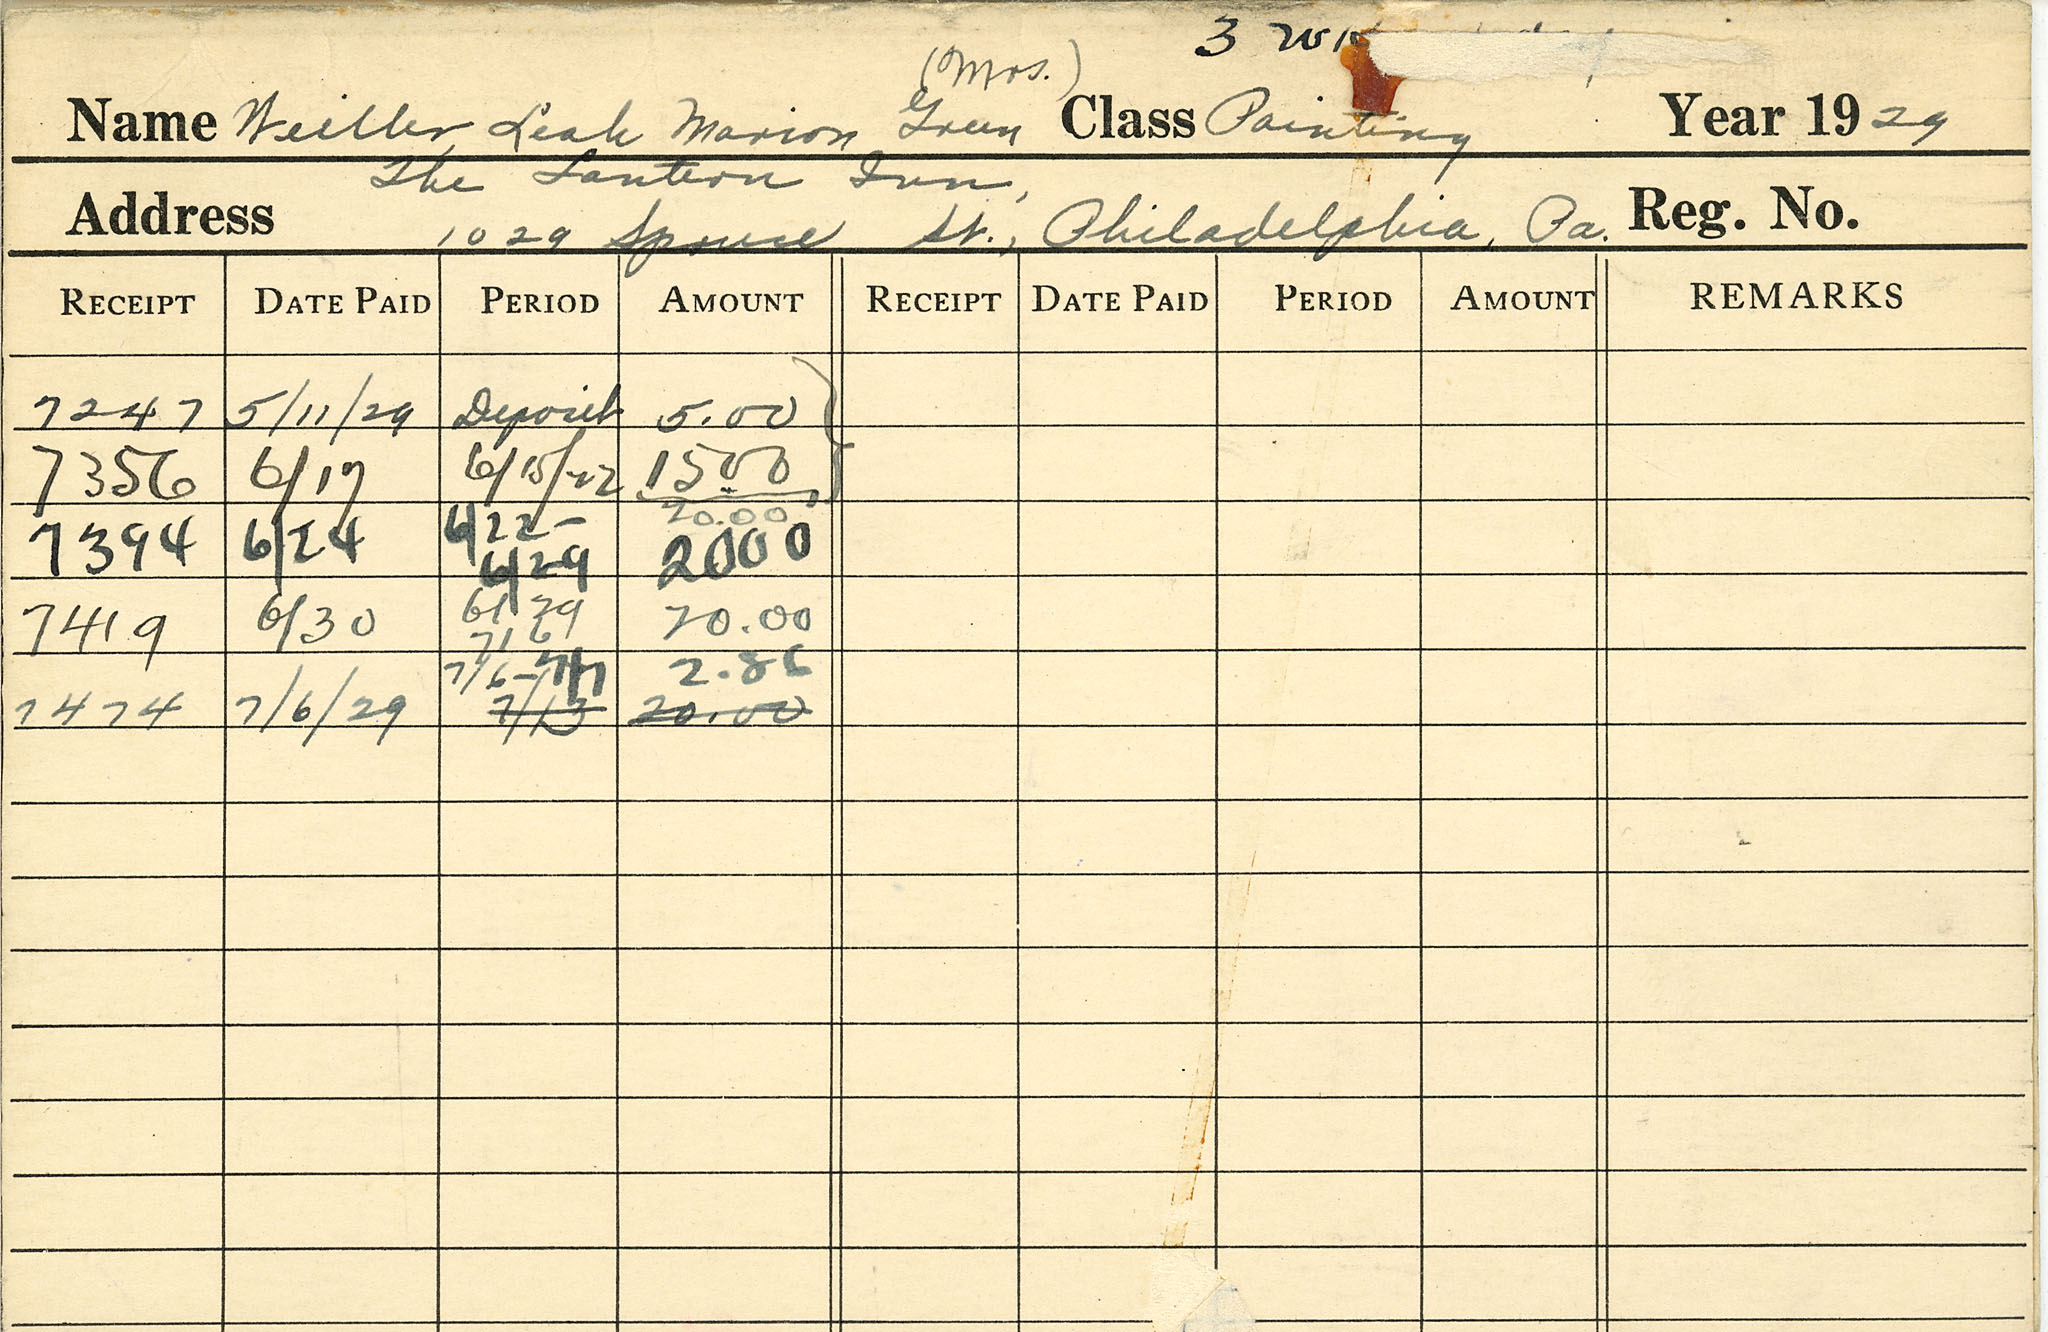 3
(Mrs.)
Name Weiller Leah Marion Green Class Painting Year 1929
The Lantern Inn,
Address 1029 Spruce St., Philadelphia, Pa. Reg. No.
RECEIPT DATE PAID PERIOD AMOUNT RECEIPT DATE PAID PERIOD AMOUNT REMARKS
7247 5/11/29 Deposit 5.00
7356 6/17 6/15/-22 15.00
20.00
7394 6/24 6/22- 6/29 2000
7419 6/30 6/29 7/6 20.00
7/6- 7/7 2.86
7474 7/6/29 7/13 20.00